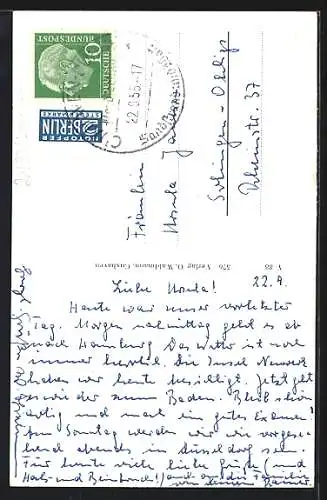 DEUTSCHE
BUNDESPOST
10
NOTOPFER
2 BERLIN
STEUERMARKE
22.9.56.-17
Fräulein
Ursula
Solingen-Ohligs
Rheinstr. 37
V 88 576 Verlag O. Waldmann, Cuxhaven
22.9.
Liebe Ursula!
Heute war unser vorletzter
Tag. Morgen nachmittag geht es ab
nach Hamburg. Das Wetter ist noch
immer herrlich. Die Insel Neuwerk
haben wir heute besichtigt. Jetzt geht
es wieder zum Baden. Bleib schön
artig und mach ein gutes Examen
Am Sonntag werden wir wie vorgese-
hend abends in Düsseldorf sein.
Für heute viele liebe Grüße (und
Hals- und Beinbruch!) und an die Familie
von Deinem